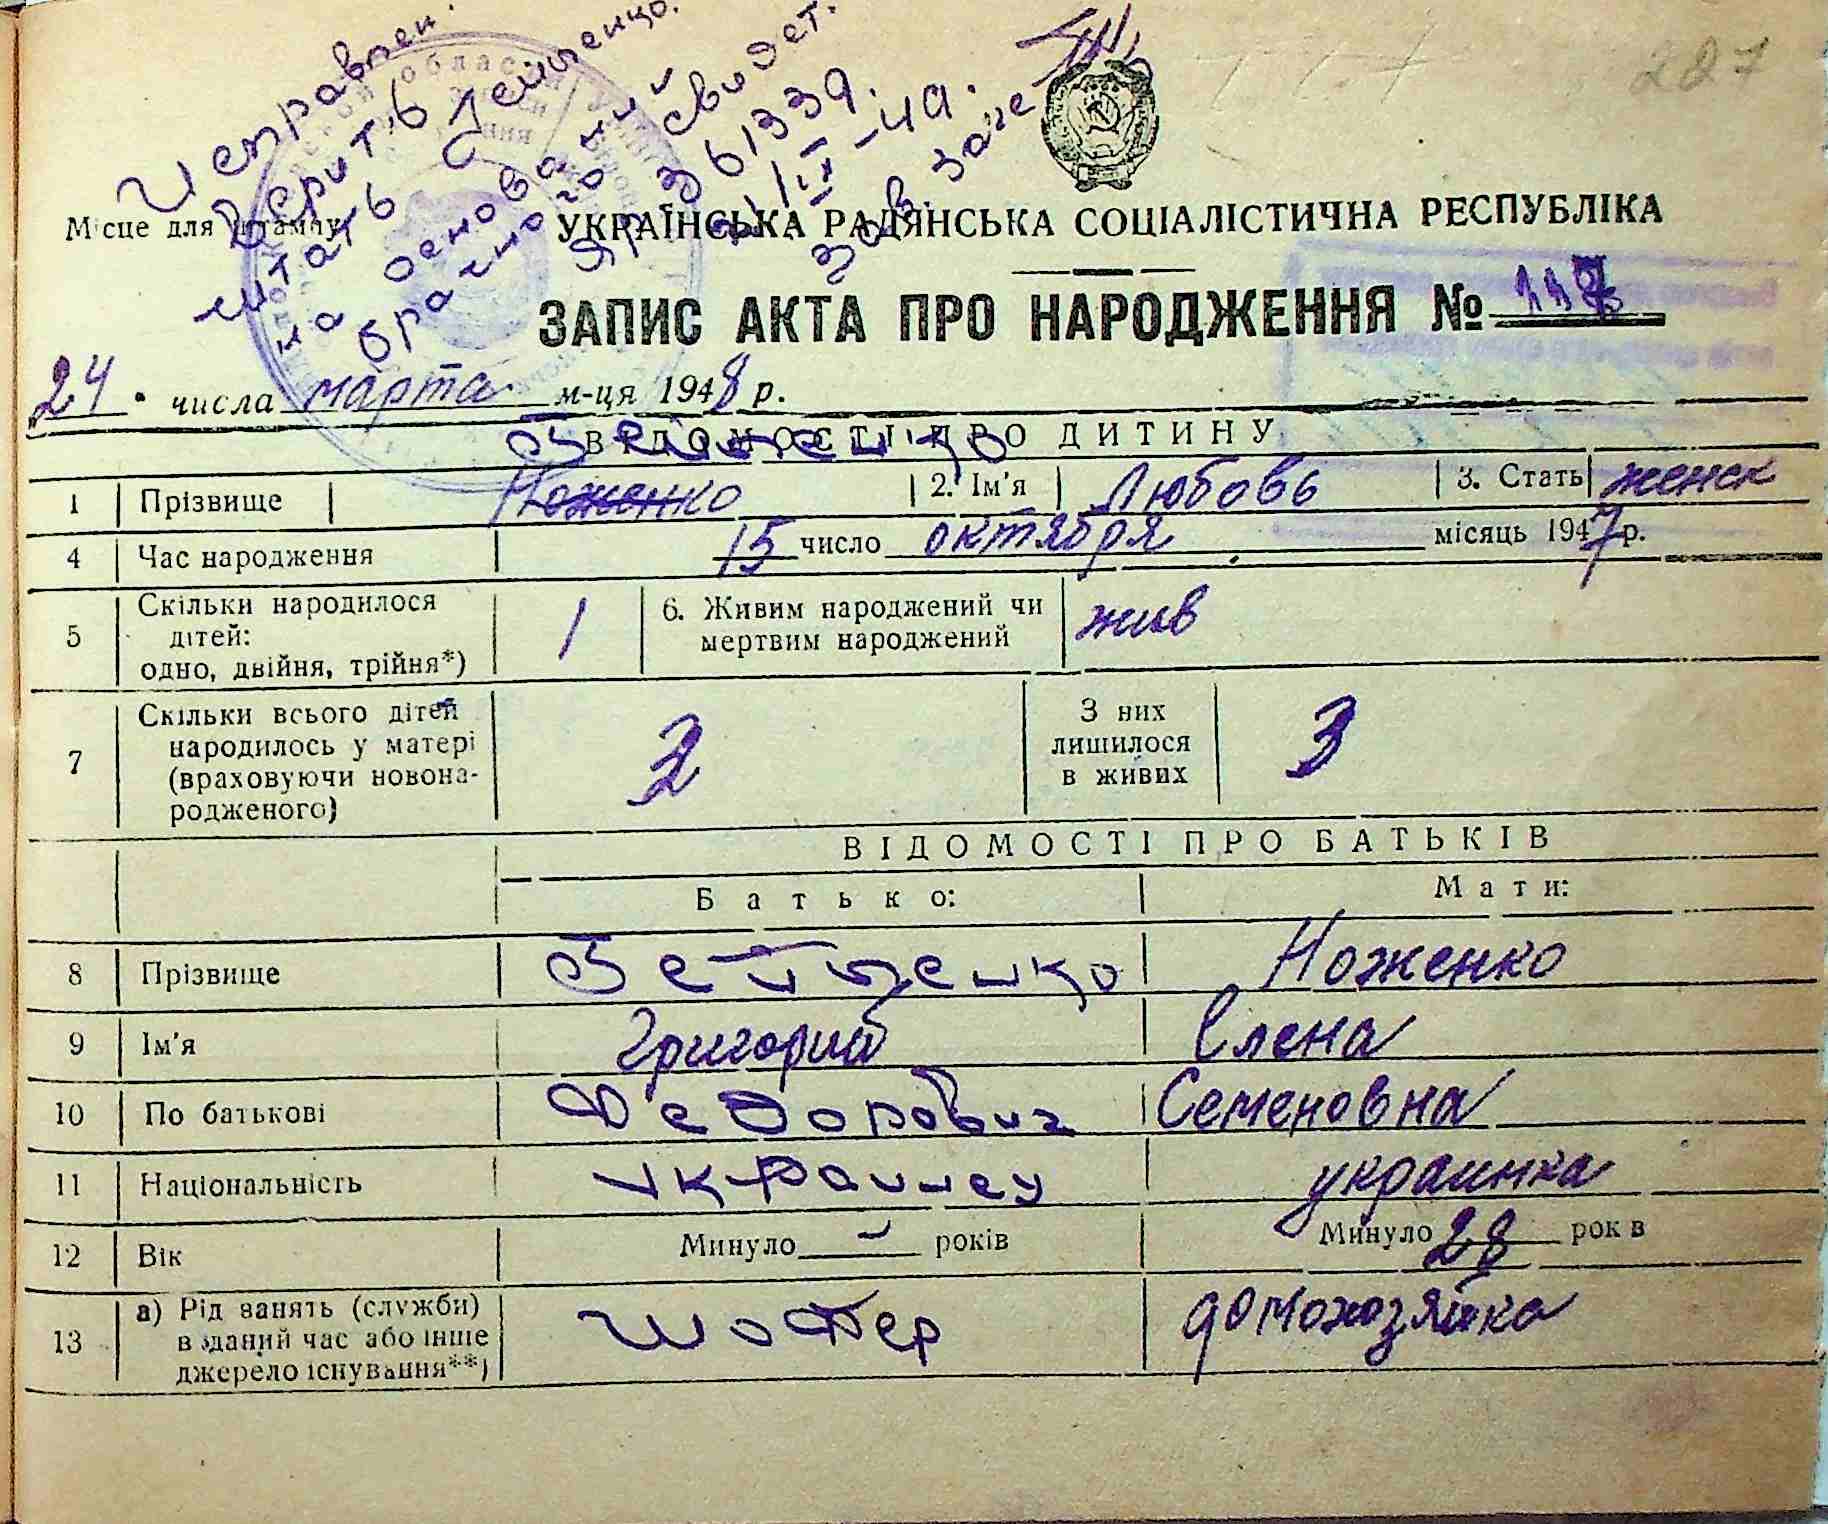 Исправлен.
Верить
читать
на основании
брачного свидет.
ЯР 361339.
227
Місце для штампу
УКРАЇНСЬКА РАДЯНСЬКА СОЦІАЛІСТИЧНА РЕСПУБЛІКА
ЗАПИС АКТА ПРО НАРОДЖЕННЯ №
24 числа марта м-ця 1948 р.
ВІДОМОСТІ ПРО ДИТИНУ
1 Прізвище Ноженко 2. Ім'я Любовь 3. Стать женск
4 Час народження 15 число октября місяць 1947 р.
5 Скільки народилося дітей: одно, двійня, трійня*) 1 6. Живим народжений чи мертвим народжений жив
7 Скільки всього дітей народилось у матері (враховуючи новонародженого) 3 З них лишилося в живих 3
ВІДОМОСТІ ПРО БАТЬКІВ
Батько: Мати:
8 Прізвище Ноженко
9 Ім'я Григорий Елена
10 По батькові Федорович Семеновна
11 Національність украинец украинка
12 Вік Минуло — років Минуло 28 рок в
13 а) Рід занять (служби) в даний час або інше джерело існування**) шофер домохозяйка